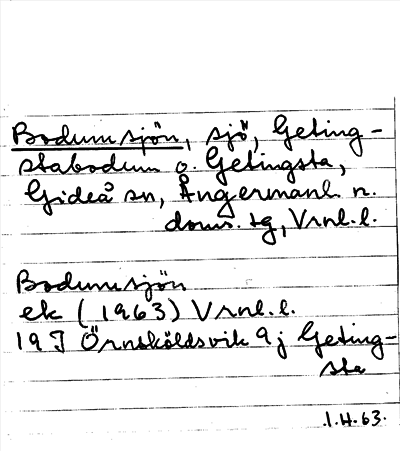 Bodumsjön, sjö, Geting-
stabodum o. Getingsta,
Gideå sn, Ångermanl. n.
doms. tg, Vrnl. l.
Bodumsjön
ek (1963) Vrnl. l.
19 J Örnsköldsvik 9 j Geting-
sta
1.4.63.